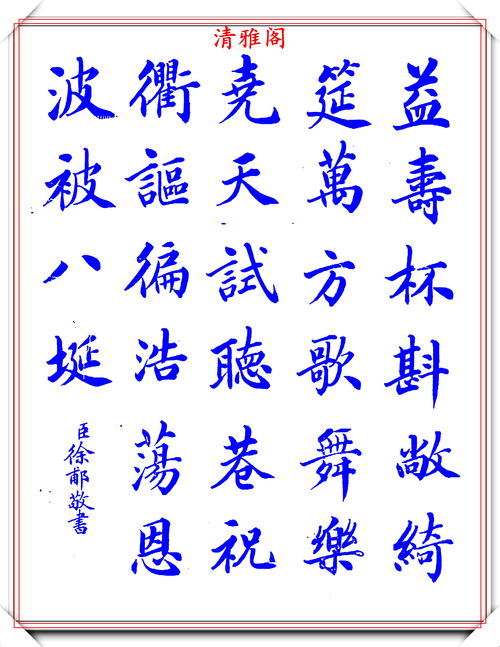 清雅阁
益壽杯斟敞綺
筵萬方歌舞樂
堯天試聽巷祝
衢謳徧浩蕩恩
波被八埏
臣徐郙敬書